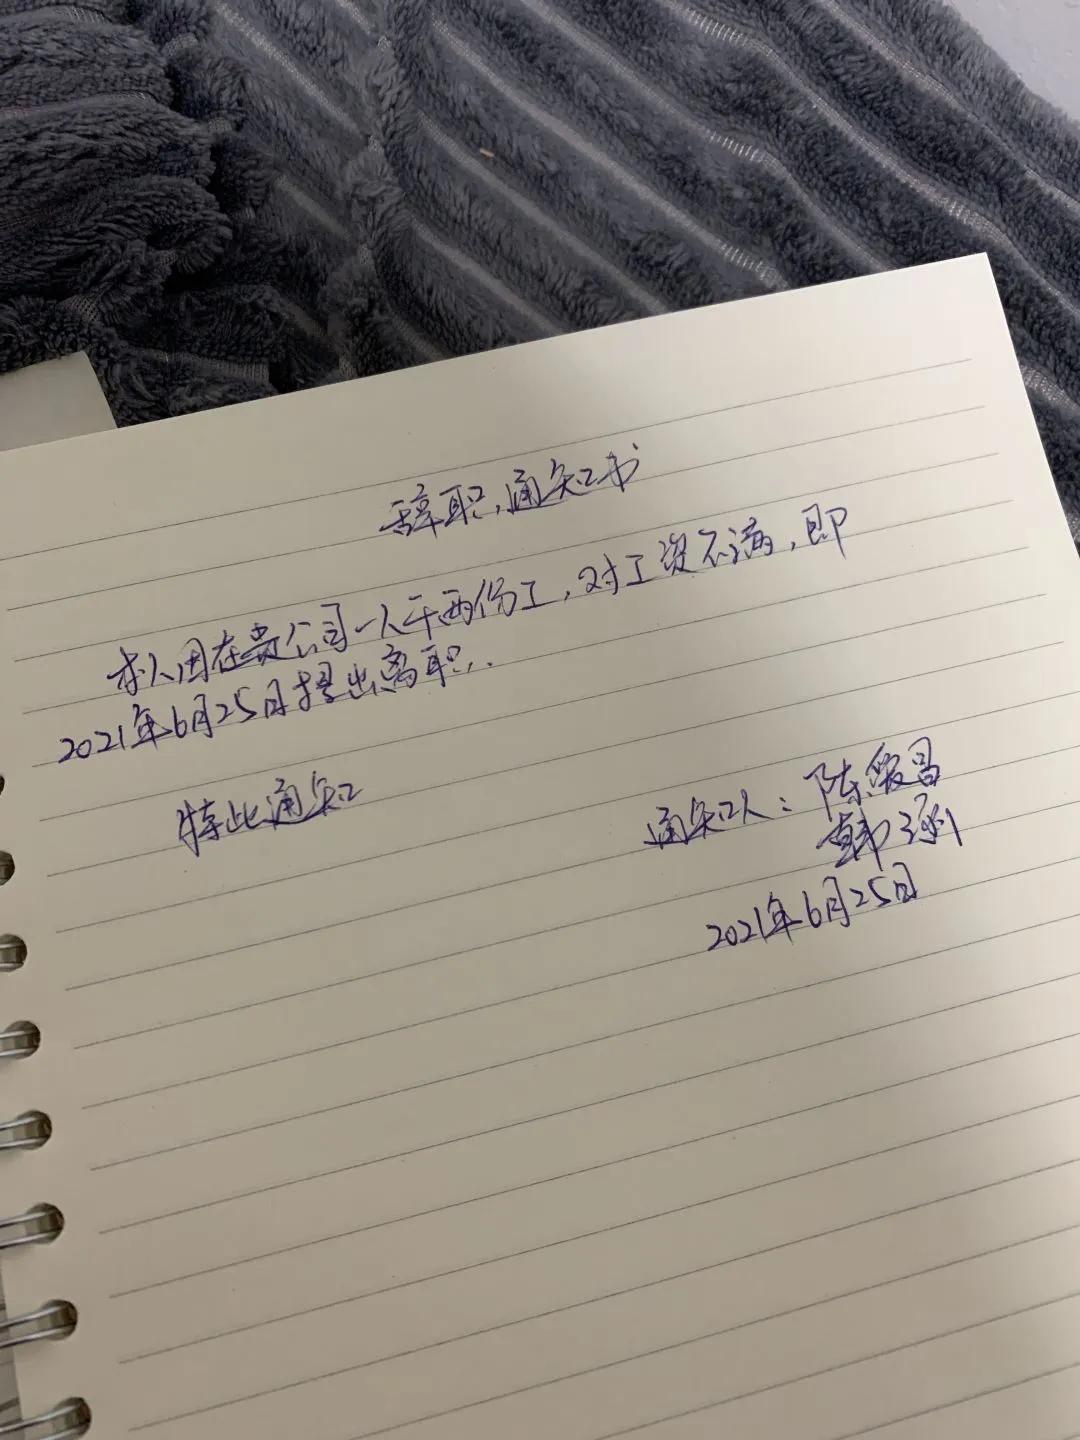 辞职通知书
本人因在贵公司一人干两份工，对工资不满，即
2021年6月25日提出离职．
特此通知
通知人：陈俊昌
韩承
2021年6月25日